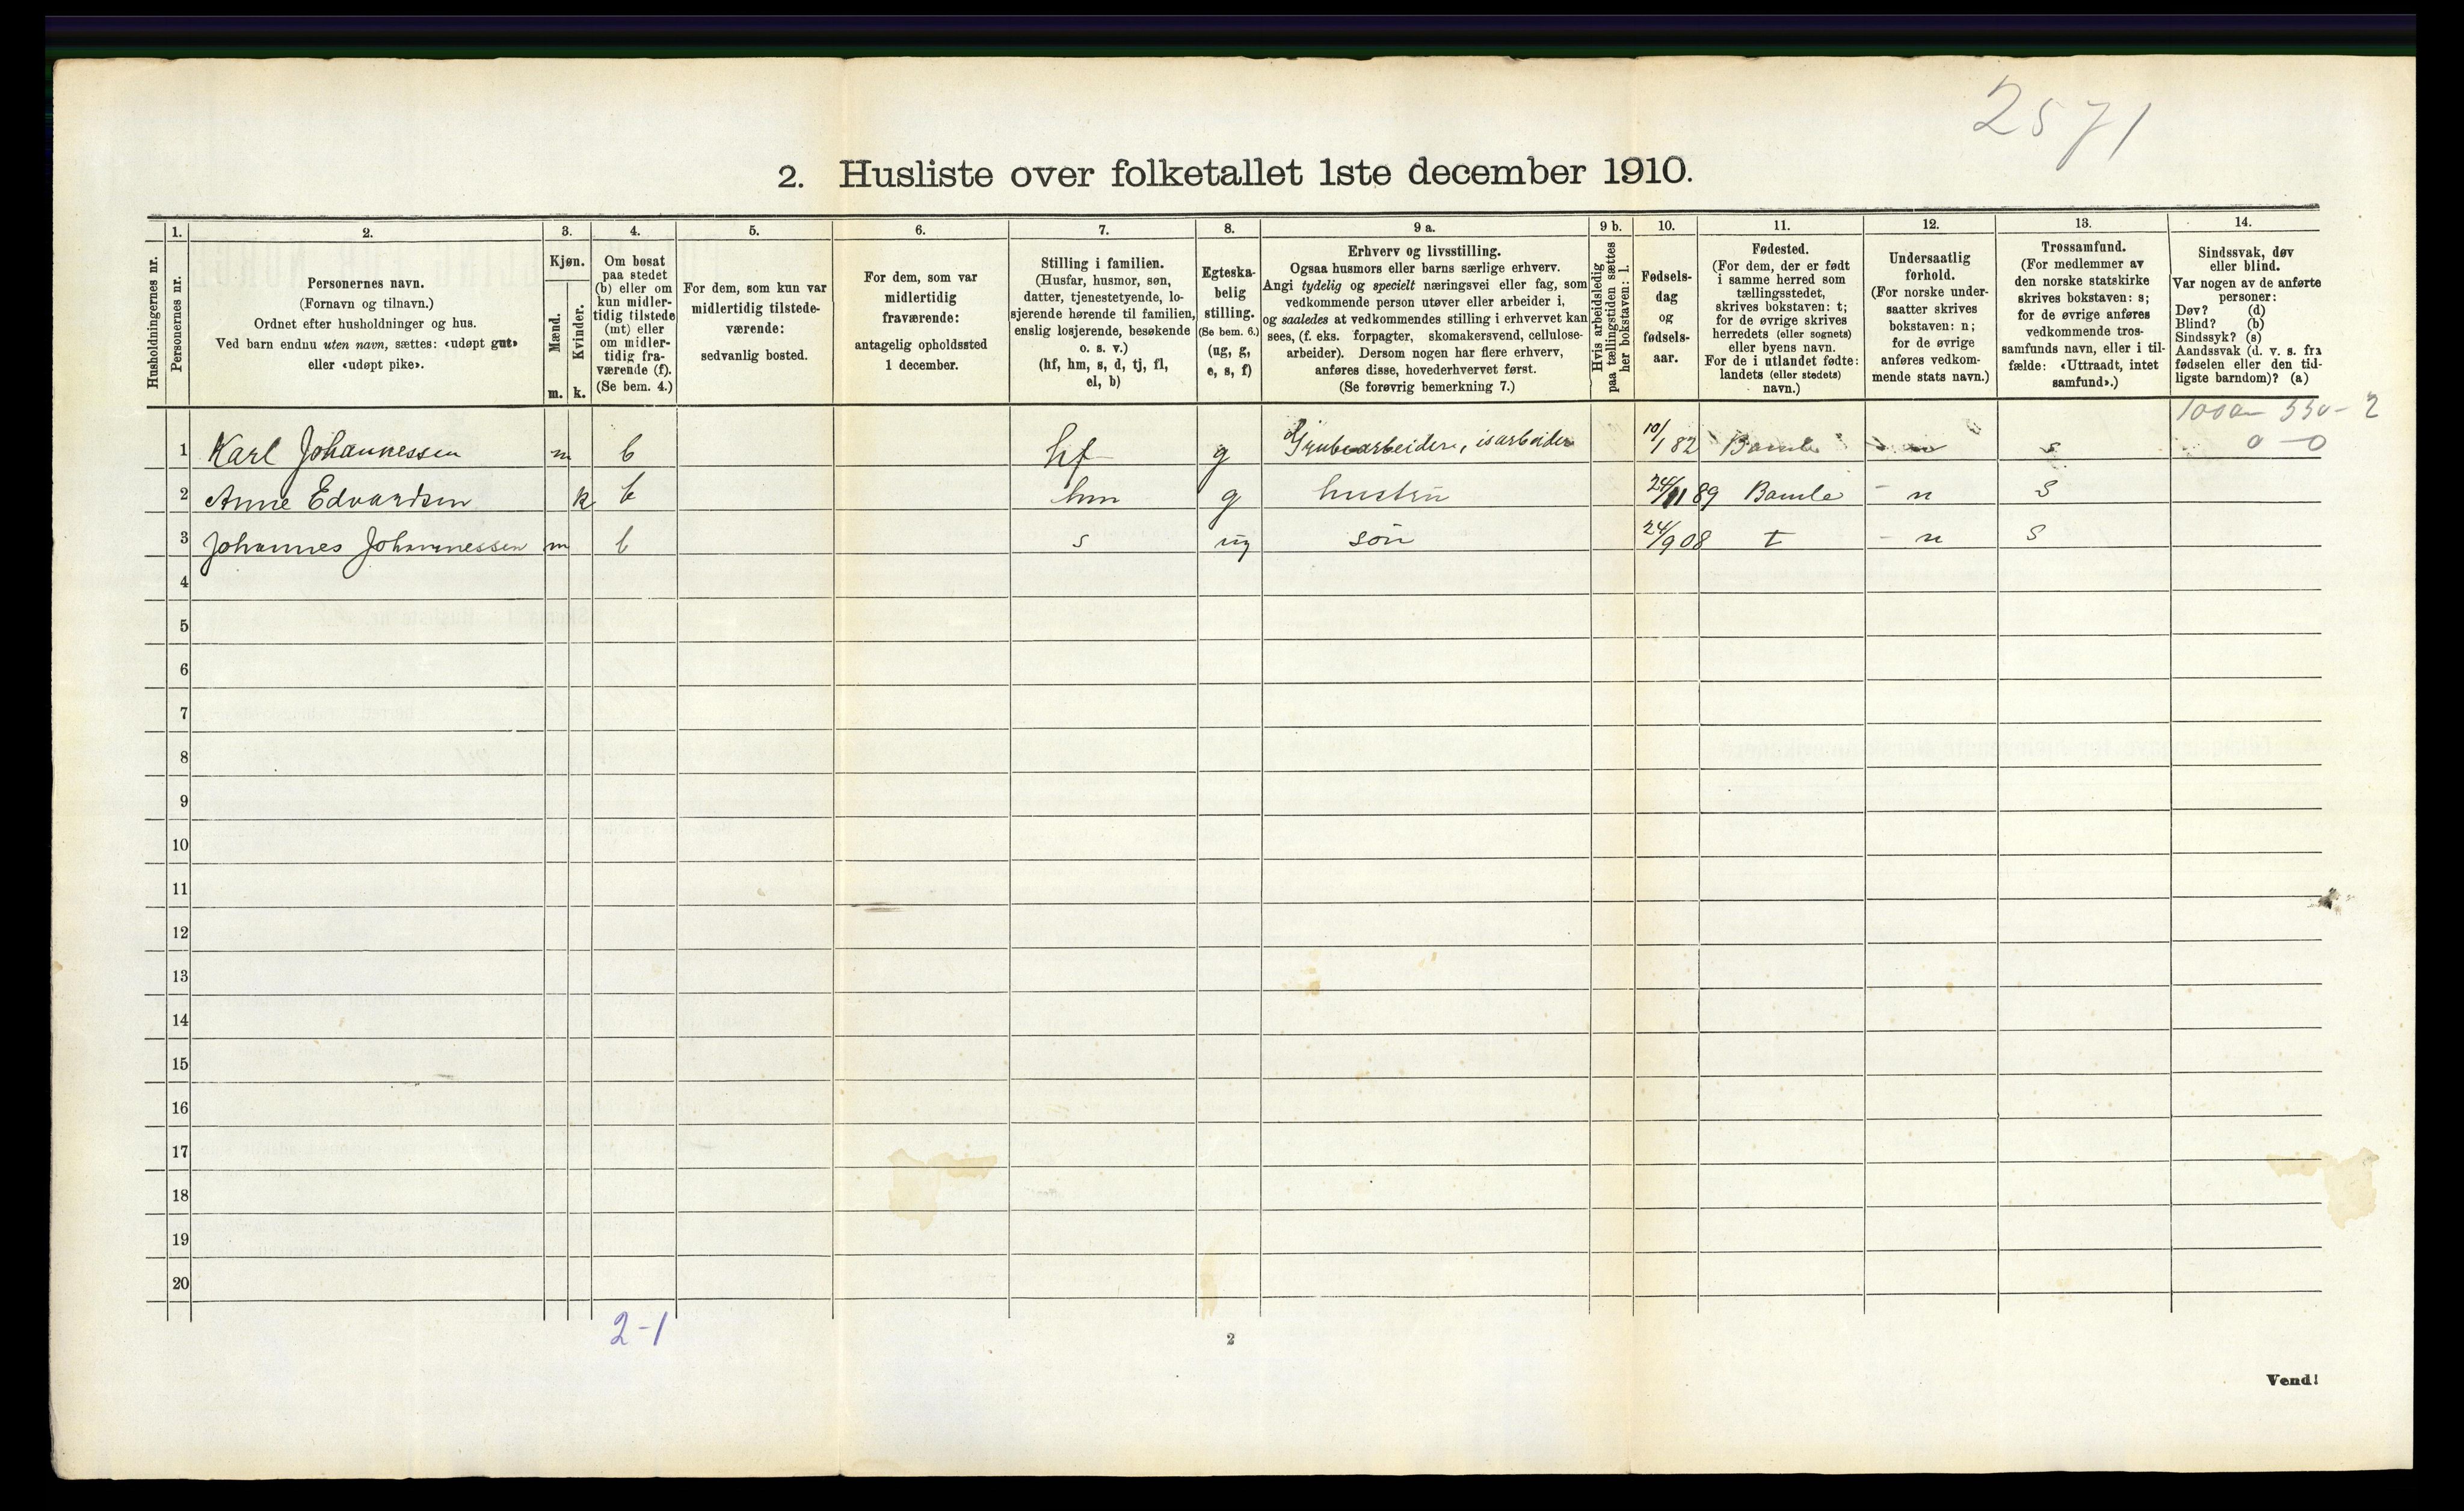 2571
2. Husliste over folketallet 1ste december 1910.
Husholdningernes nr.
1. Personernes nr.
2. Personernes navn.
(Fornavn og tilnavn.)
Ordnet efter husholdninger og hus.
Ved barn endnu uten navn, sættes: «udøpt gut»
eller «udøpt pike».
3. Kjøn.
Mænd. m.
Kvinder. k.
4. Om bosat
paa stedet
(b) eller om
kun midler-
tidig tilstede
(mt) eller
om midler-
tidig fra-
værende (f).
(Se bem. 4.)
5. For dem, som kun var
midlertidig tilstede-
værende:
sedvanlig bosted.
6. For dem, som var
midlertidig
fraværende:
antagelig opholdssted
1 december.
7. Stilling i familien.
(Husfar, husmor, søn,
datter, tjenestetyende, lo-
sjerende hørende til familien,
enslig losjerende, besøkende
o. s. v.)
(hf, hm, s, d, tj, fl,
el, b)
8. Egteska-
belig
stilling.
(Se bem. 6.)
(ug, g,
e, s, f)
9 a. Erhverv og livsstilling.
Ogsaa husmors eller barns særlige erhverv.
Angi tydelig og specielt næringsvei eller fag, som
vedkommende person utøver eller arbeider i,
og saaledes at vedkommendes stilling i erhvervet kan
sees, (f. eks. forpagter, skomakersvend, cellulose-
arbeider). Dersom nogen har flere erhverv,
anføres disse, hovederhvervet først.
(Se forøvrig bemerkning 7.)
9 b. Hvis arbeidsledig
paa tællingstiden sættes
her bokstaven: l.
10. Fødsels-
dag
og
fødsels-
aar.
11. Fødested.
(For dem, der er født
i samme herred som
tællingsstedet,
skrives bokstaven: t;
for de øvrige skrives
herredets (eller sognets)
eller byens navn.
For de i utlandet fødte:
landets (eller stedets)
navn.)
12. Undersaatlig
forhold.
(For norske under-
saatter skrives
bokstaven: n;
for de øvrige
anføres vedkom-
mende stats navn.)
13. Trossamfund.
(For medlemmer av
den norske statskirke
skrives bokstaven: s;
for de øvrige anføres
vedkommende tros-
samfunds navn, eller i til-
fælde: «Uttraadt, intet
samfund».)
14. Sindssvak, døv
eller blind.
Var nogen av de anførte
personer:
Døv? (d)
Blind? (b)
Sindssyk? (s)
Aandssvak (d. v. s. fra
fødselen eller den tid-
ligste barndom)? (a)
550 - 2
0 - 0
1 Karl Johannessen m b hf g Grubearbeider, isarbeider 10/1 82 Bamle n s
2 Anne Edvardsen k b hm g hustru 24/11 89 Bamle n s
3 Johannes Johannessen m b s ug søn 24/9 08 t n s
4
5
6
7
8
9
10
11
12
13
14
15
16
17
18
19
20
2-1
2
Vend!